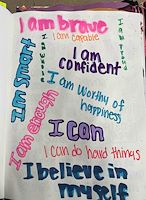 I am brave
I am capable
I am confident
I am Worthy of
happiness
I am enough
I can
I can do hard things
I believe in
myself